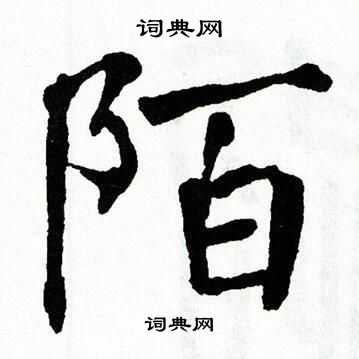 词典网
陌
词典网